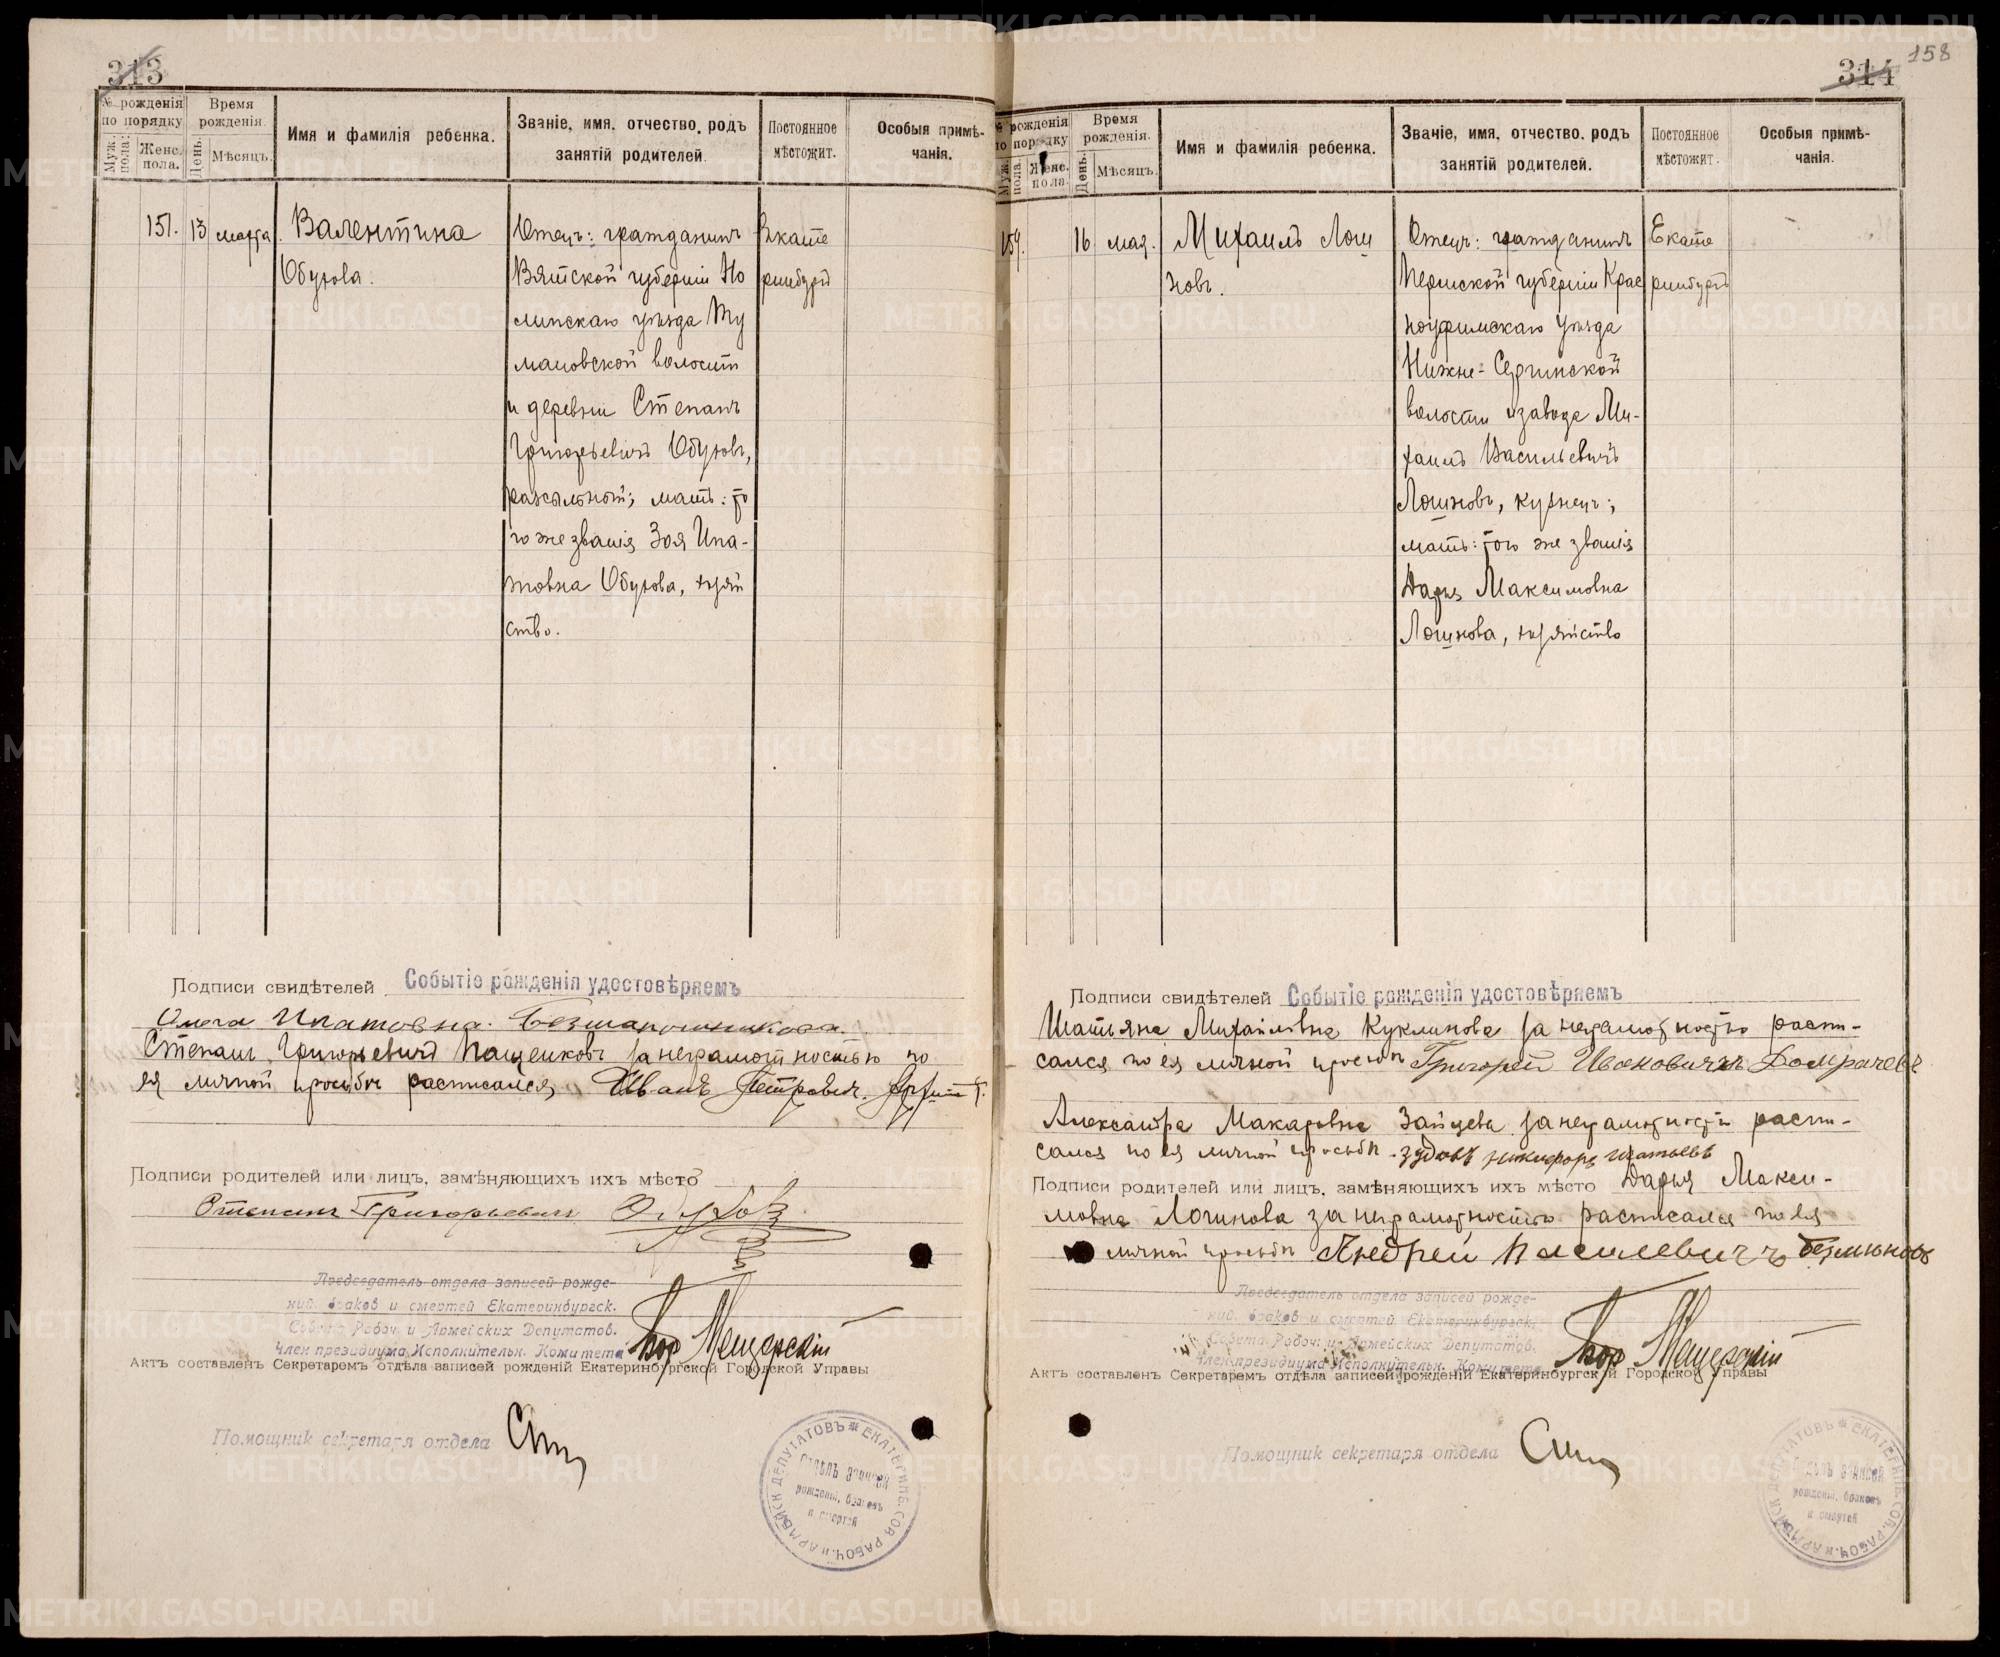 313
№ рожденія по порядку
Муж. пола.
Женс. пола.
Время рожденія.
День.
Мѣсяцъ.
Имя и фамилія ребенка.
Званіе, имя, отчество, родъ занятій родителей.
Постоянное мѣстожит.
Особыя примѣчанія.
151.
13
марта
Валентина
Обухова.
Отецъ: гражданинъ
Вятской губерніи Но
линскаго уѣзда Ту
мановской волости
и деревни Степанъ
Григорьевичъ Обуховъ,
разсыльный; мать: то
го же званія Зоя Ипа-
товна Обухова, хозяй
ство.
Екате
ринбургъ
Подписи свидѣтелей Событіе рожденія удостовѣряемъ
Ольга Ипатовна
Степанъ Григорьевичъ Пащенковъ за неграмотностью по
ея личной просьбѣ расписался Иванъ Петрович
Подписи родителей или лицъ, замѣняющихъ ихъ мѣсто
Степанъ Григорьевич Обухов
Председатель отдела записей рожде-
ний, браков и смертей Екатеринбургск.
Совета Рабоч. и Армейских Депутатов.
Член президиума Исполнительн. Комитета
Актъ составленъ Секретаремъ отдѣла записей рожденій Екатеринбургской Городской Управы
Помощник секретаря отдела
ЕКАТЕРИНБ. СОВ. РАБОЧ. И АРМЕЙСК ДЕПУТАТОВЪ
ОТДѢЛЪ ЗАПИСЕЙ
рожденій, браковъ
и смертей
158
314
№ рожденія по порядку
Муж. пола.
Женс. пола.
Время рожденія.
День.
Мѣсяцъ.
Имя и фамилія ребенка.
Званіе, имя, отчество, родъ занятій родителей.
Постоянное мѣстожит.
Особыя примѣчанія.
159.
16
мая.
Михаилъ Логи
новъ.
Отецъ: гражданинъ
Пермской губерніи Крас
ноуфимскаго уѣзда
Нижне-Сергинской
волости и завода Ми-
хаилъ Васильевичъ
Логиновъ, кузнецъ;
мать: того же званія
Дарья Максимовна
Логинова, хозяйство
Екате
ринбургъ
Подписи свидѣтелей Событіе рожденія удостовѣряемъ
Татьяна Михаиловна Куклинова за неграмотностью распи-
сался по ея личной просьбѣ Григорей Ивановичъ Домрачевъ
Александра Макаровна Зайцева за неграмотности распи-
сался по ея личной просьбѣ
Подписи родителей или лицъ, замѣняющихъ ихъ мѣсто Дарья Макси-
мовна Логинова за неграмотностью расписался по ея
личной просьбѣ Андрей
Председатель отдела записей рожде-
ний, браков и смертей Екатеринбургск.
Совета Рабоч. и Армейских Депутатов.
Член президиума Исполнительн. Комитета
Актъ составленъ Секретаремъ отдѣла записей рожденій Екатеринбургской Городской Управы
Помощник секретаря отдела
ЕКАТЕРИНБ. СОВ. РАБОЧ. И АРМЕЙСК ДЕПУТАТОВЪ
ОТДѢЛЪ ЗАПИСЕЙ
рожденій, браковъ
и смертей
METRIKI.GASO-URAL.RU